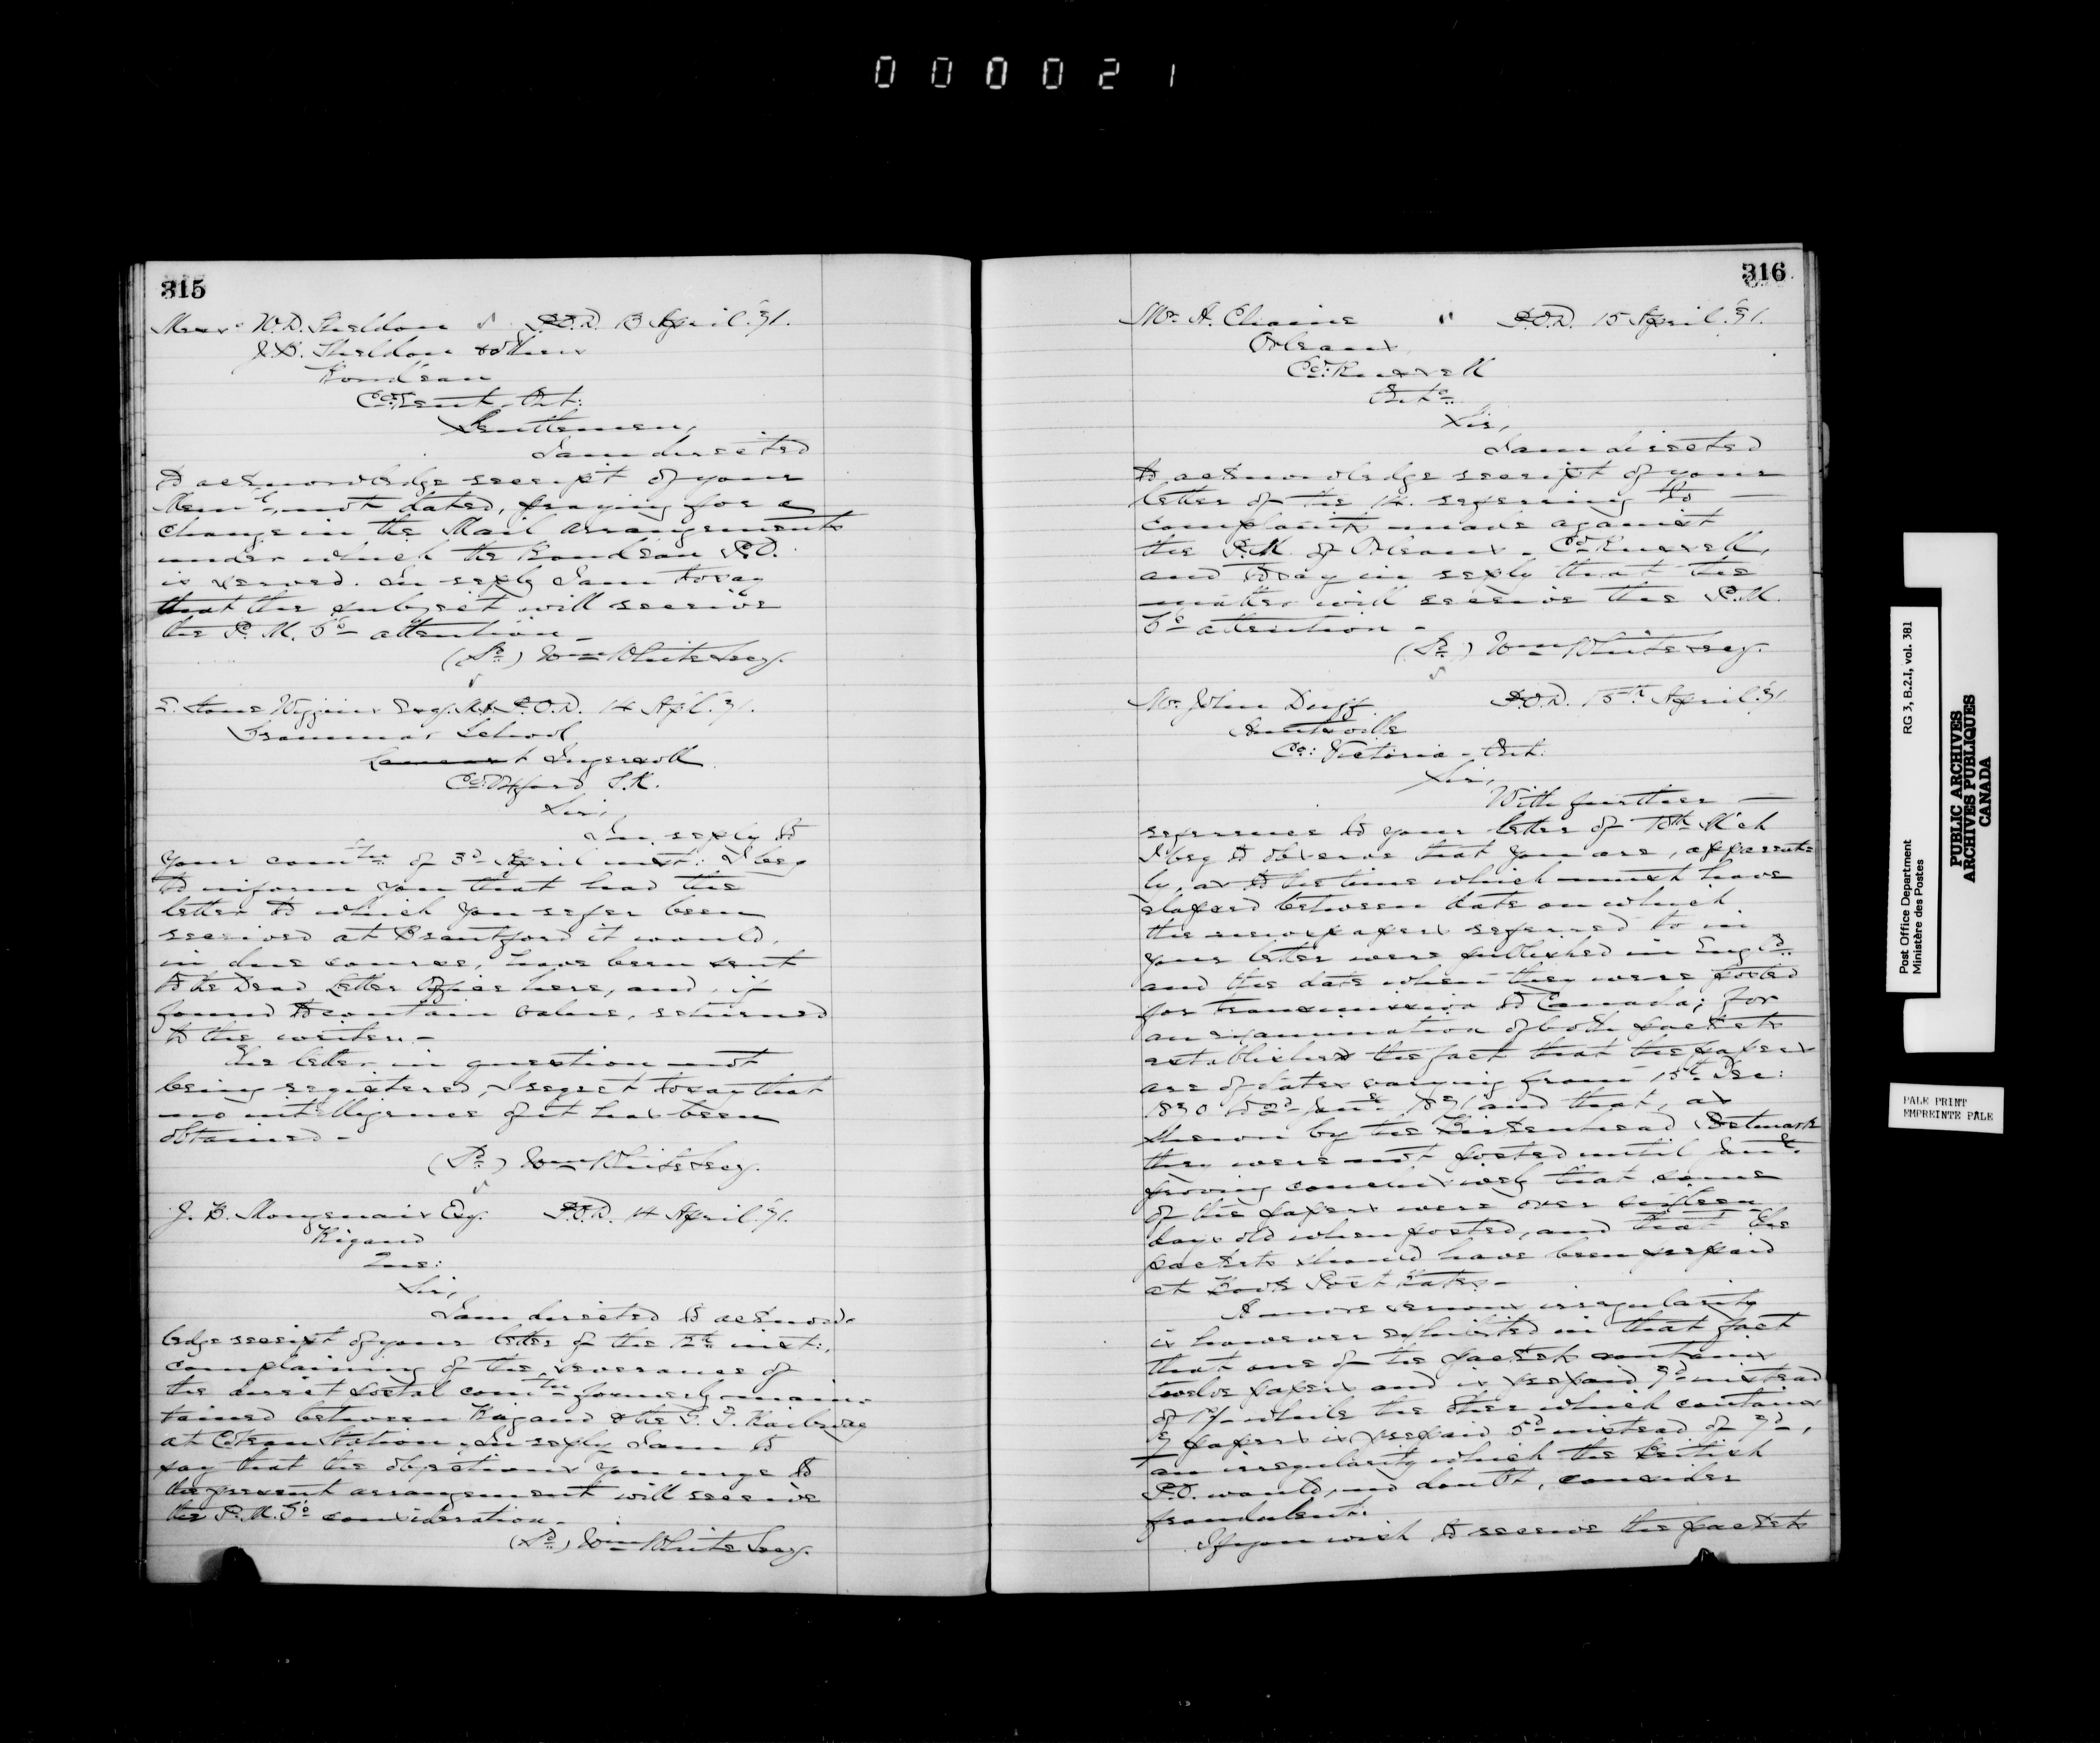 000021
315
Messrs W.D. Sheldon P.O.D. 13 April '71.
J.B. Sheldon & others
Rondeau
Co: Kent Ont:
Gentlemen,
I am directed
to acknowledge receipt of your
Meml, not dated, praying for a
change in the Mail arrangements
under which the Rondeau P.O.
is served. In reply I am to say
that the subject will receive
the P. M. Gl attention_
(Sd) Wm White Secy.
E. Stone Wiggins Esq. P.O.D. 14 Apl. '71.
Grammar School
Ingersoll
Co: Oxford
Sir,
In reply to
your comtn of 3d April inst: I beg
to inform you that had the
letter to which you refer been
received at Brantford it would,
in due course, have been sent
to the Dead Letter Office here, and, if
found to contain value, returned
to the writer._
The letter in question not
being registered, I regret to say that
no intelligence of it has been
obtained_
(Sd) Wm White Secy.
J. B. Esq. P.O.D. 14 April '71.
Rigaud
Que:
Sir,
I am directed to acknow-
ledge receipt of your letter of the inst:,
complaining of the severance of
the direct postal comtn formerly main-
tained between Rigaud & the G. T. Railway
at Coteau Station. In reply I am to
say that the objections you urge to
the present arrangement will receive
the P. M. Gl consideration_
(Sd) Wm White Secy.
316
Mr A. P.O.D. 15 April '71.
Orleans,
Co: Russell
Onto
Sir,
I am directed
to acknowledge receipt of your
letter of the 14. referring to
complaints made against
the P.M. of Orleans_ Co: Russell,
and to say in reply that the
matter will receive the P.M.
Gl attention_
(Sd) Wm White Secy.
Mr John Duff P.O.D. 15th April '71
Co: Victoria_Ont:
Sir,
With further
reference to your letter of 10th Mch
I beg to observe that you are, apparent-
ly, as to the time which must have
elapsed between date on which
the newspapers referred to in
your letter were published in Engld
and the date when they were posted
for transmission to Canada; for
an examination of both packets
established the fact that the papers
are of dates varying from 15th Dec:
1870 to 2d Jany 1871 and that, as
shewn by the Birkenhead Postmark
they were not posted until
proving conclusively that some
of the papers were over sixteen
days old when posted, and that the
packets should have been prepaid
at Book Post Rates._
A more serious irregularity
is however exhibited in that fact
that one of the packets contains
twelve papers and is prepaid instead
of 1/- while the other which contains
papers is prepaid 5d instead of
an irregularity which the British
P.O. would, no doubt, consider
fraudulent.
If you wish to receive the packets
Post Office Department
Ministère des Postes
RG 3, B.2.I, vol. 381
PUBLIC ARCHIVES
ARCHIVES PUBLIQUES
CANADA
PALE PRINT
EMPREINTE PÂLE